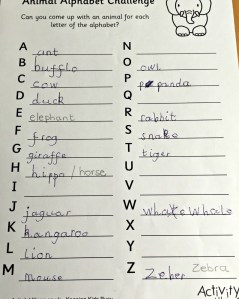 Animal Alphabet Challenge
Can you come up with an animal for each
letter of the alphabet?
A ant
B bufflo
C cow
D duck
E elephant
F frog
G giraffe
H hippo / horse
I
J jaguar
K kangaroo
L lion
M mouse
N
O owl
P panda
Q
R rabbit
S snake
T tiger
U
V
W whale
X
Y
Z Zeber Zebra
Activity